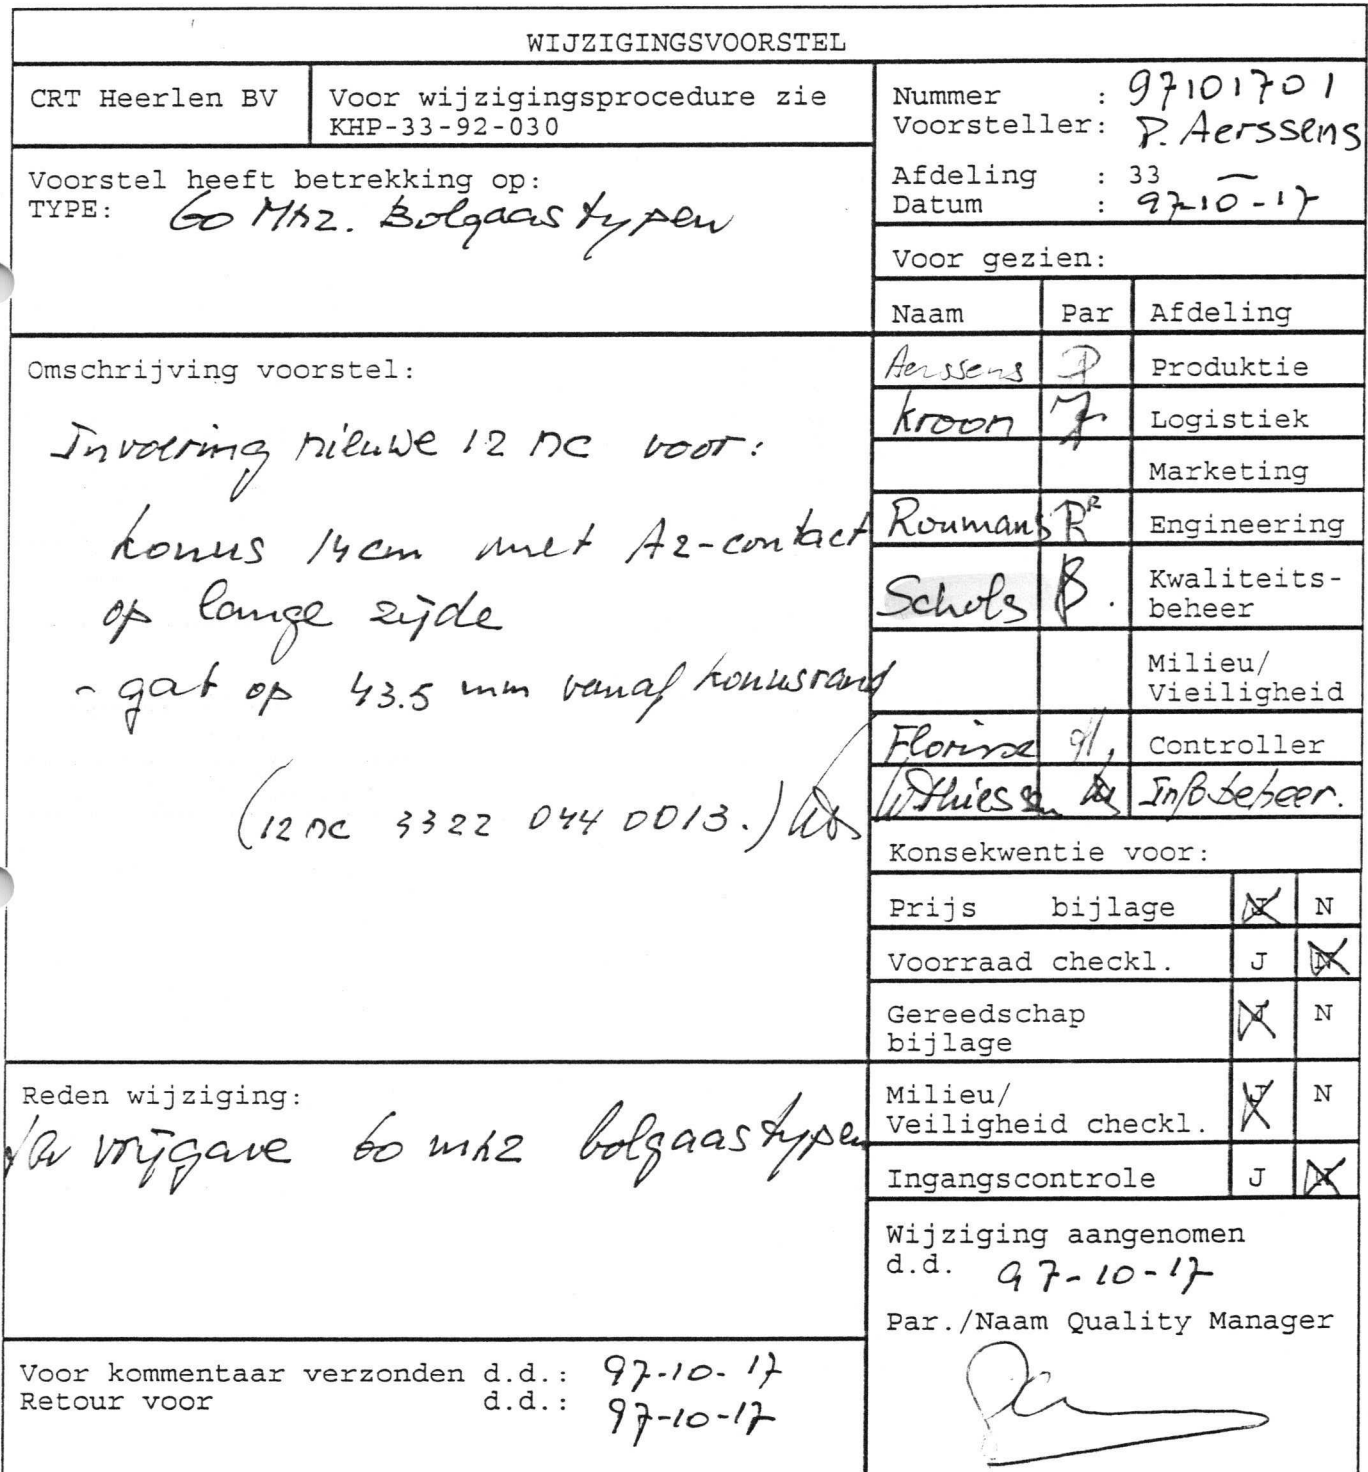 WIJZIGINGSVOORSTEL
CRT Heerlen BV
Voor wijzigingsprocedure zie
KHP-33-92-030
Nummer : 97101701
Voorsteller: P. Aerssens
Afdeling : 33
Datum : 97-10-17
Voorstel heeft betrekking op:
TYPE: 60 Mhz. Bolgaas typen
Voor gezien:
Naam Par Afdeling
Aerssens Produktie
Kroon Logistiek
Marketing
Roumans R Engineering
Schols Kwaliteits-
beheer
Milieu/
Vieiligheid
Controller
Thiessen Infobeheer.
Omschrijving voorstel:
Invoering nieuwe 12 nc voor:
konus 14cm met A2-contact
op lange zijde
- gat op 43.5 mm vanaf konusrand
(12 nc 3322 044 0013.)
Konsekwentie voor:
Prijs bijlage J N
Voorraad checkl. J N
Gereedschap
bijlage J N
Milieu/
Veiligheid checkl. J N
Ingangscontrole J N
Reden wijziging:
vrijgave 60 mhz bolgaastypen
Wijziging aangenomen
d.d. 97-10-17
Par./Naam Quality Manager
Voor kommentaar verzonden d.d.: 97-10-17
Retour voor d.d.: 97-10-17